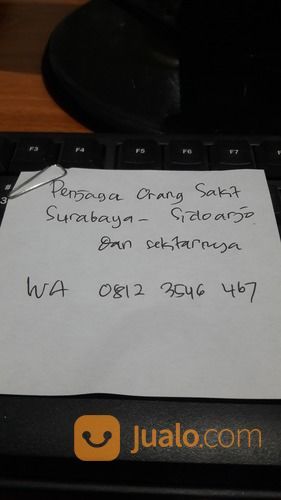 F3 F4 F5 F6 F7
#
3
Penjaga Orang Sakit
Surabaya - Sidoarjo
dan sekitarnya
WA 0812 3546 467
jualo.com